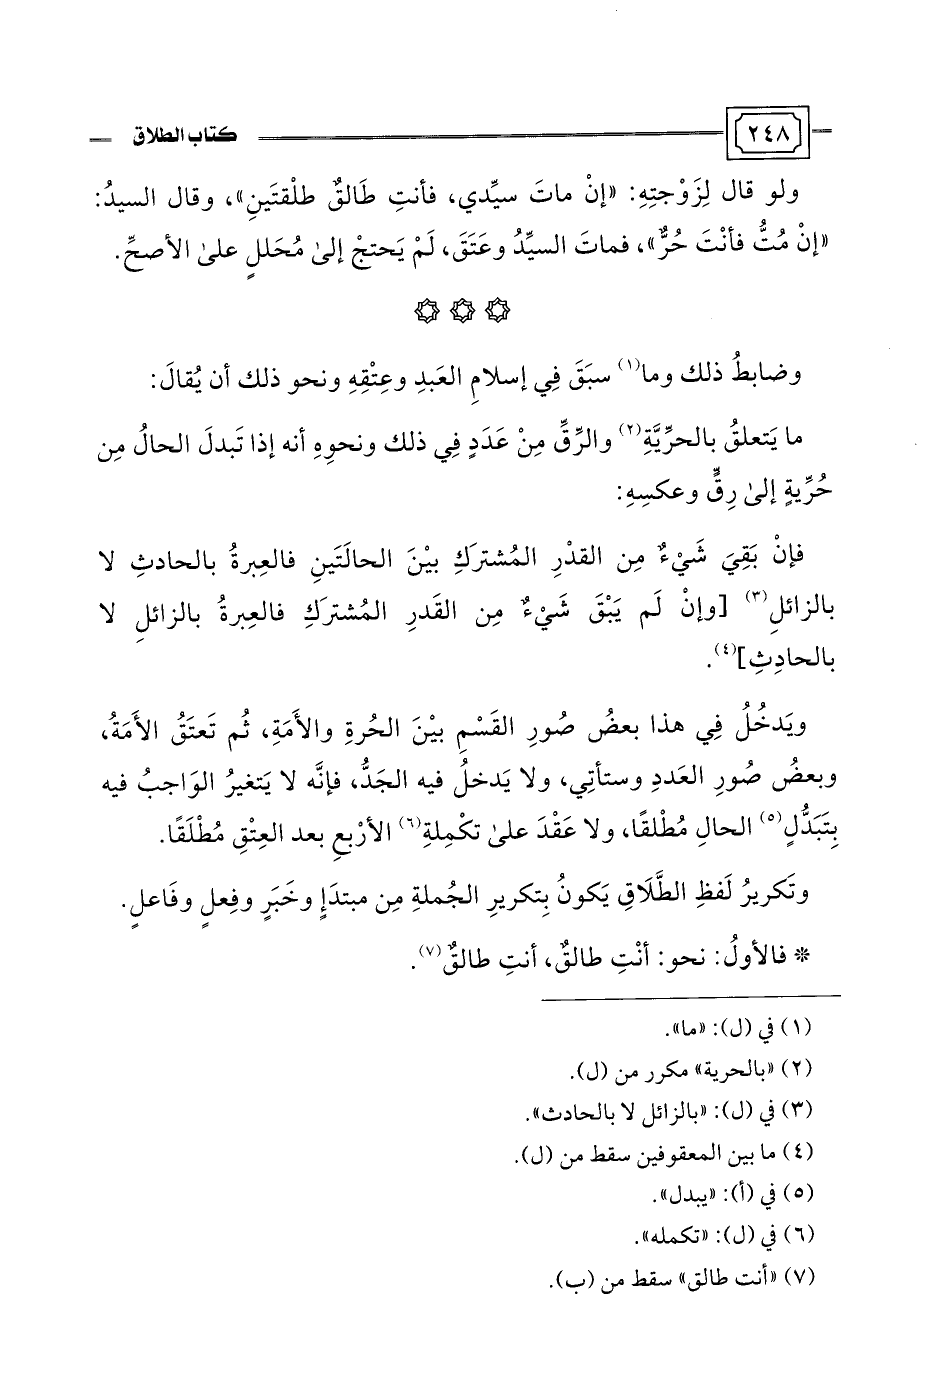 ٢٤٨ كتاب الطلاق
ولو قال لِزَوْجتِهِ: «إنْ ماتَ سيِّدي، فأنتِ طَالقٌ طلْقتَينِ»، وقال السيدُ:
«إنْ مُتُّ فأنْتَ حُرٌّ»، فماتَ السيِّدُ وعَتَقَ، لَمْ يَحتجْ إلىٰ مُحَللٍ علىٰ الأصحِّ.
وضابطُ ذلك وما(١) سبَقَ فِي إسلامِ العَبدِ وعِتْقِهِ ونحو ذلك أن يُقالَ:
ما يَتعلقُ بالحرِيَّةِ(٢) والرِّقِّ مِنْ عَدَدٍ فِي ذلك ونحوِهِ أنه إذا تَبدلَ الحالُ مِن
حُرِّيةٍ إلىٰ رِقٍّ وعكسِهِ:
فإنْ بَقِيَ شَيْءٌ مِن القدْرِ المُشتركِ بيْنَ الحالَتَينِ فالعِبرةُ بالحادثِ لا
بالزائلِ(٣) [وإنْ لَم يَبْقَ شَيْءٌ مِن القَدرِ المُشتركِ فالعِبرةُ بالزائلِ لا
بالحادِثِ](٤).
ويَدخُلُ فِي هذا بعضُ صُورِ القَسْمِ بيْنَ الحُرةِ والأَمَةِ، ثُم تَعتَقُ الأَمَةُ،
وبعضُ صُورِ العَددِ وستأتِي، ولا يَدخلُ فيه الجَدُّ، فإنَّه لا يَتغيرُ الوَاجبُ فيه
بِتَبَدُّلٍ(٥) الحالِ مُطلقًا، ولا عَقْدَ علىٰ تكْمِلةِ(٦) الأرْبعِ بعد العِتْقِ مُطْلَقًا.
وتَكريرُ لَفظِ الطَّلَاقِ يَكونُ بِتكريرِ الجُملةِ مِن مبتدَإٍ وخَبَرٍ وفِعلٍ وفَاعلٍ.
* فالأولُ: نحو: أنْتِ طالقٌ، أنتِ طالقٌ(٧).
(١) في (ل): «ما».
(٢) «بالحرية» مكرر من (ل).
(٣) في (ل): «بالزائل لا بالحادث».
(٤) ما بين المعقوفين سقط من (ل).
(٥) في (أ): «يبدل».
(٦) في (ل): «تكمله».
(٧) «أنت طالق» سقط من (ب).